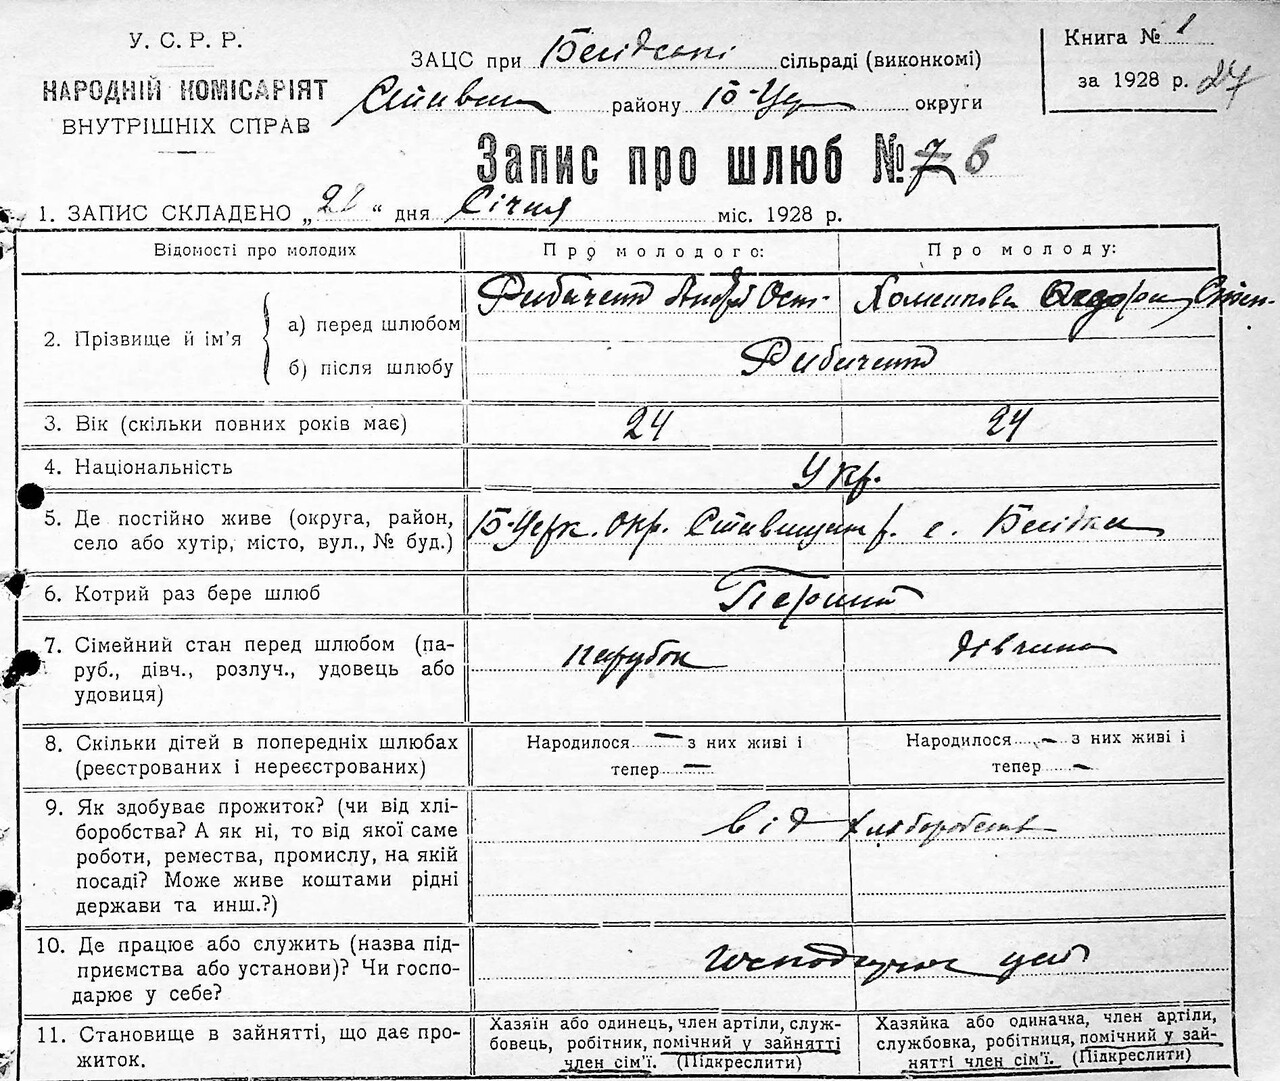 У. С. Р. Р.
НАРОДНІЙ КОМІСАРІЯТ
ВНУТРІШНІХ СПРАВ
ЗАЦС при сільраді (виконкомі)
району Б-Ц округи
Книга № 1
за 1928 р. 27
Запис про шлюб № 7 6
1. ЗАПИС СКЛАДЕНО „ “ дня Січня міс. 1928 р.
Відомості про молодих
Про молодого:
Про молоду:
2. Прізвище й ім’я
а) перед шлюбом
б) після шлюбу
Рибиченко
3. Вік (скільки повних років має)
24
24
4. Національність
Укр.
5. Де постійно живе (округа, район,
село або хутір, місто, вул., № буд.)
Б-Церк. окр. Ставищан р. с. Бесідка
6. Котрий раз бере шлюб
7. Сімейний стан перед шлюбом (па-
руб., дівч., розлуч., удовець або
удовиця)
парубок
дівчина
8. Скільки дітей в попередніх шлюбах
(реєстрованих і нереєстрованих)
Народилося — з них живі і
тепер —
Народилося — з них живі і
тепер —
9. Як здобуває прожиток? (чи від хлі-
боробства? А як ні, то від якої саме
роботи, ремества, промислу, на якій
посаді? Може живе коштами рідні
держави та инш.?)
від хліборобства
10. Де працює або служить (назва під-
приємства або установи)? Чи госпо-
дарює у себе?
11. Становище в зайнятті, що дає про-
житок.
Хазяїн або одинець, член артіли, служ-
бовець, робітник, помічний у зайнятті
член сім’ї. (Підкреслити)
Хазяйка або одиначка, член артіли,
службовка, робітниця, помічний у зай-
нятті член сім’ї. (Підкреслити)